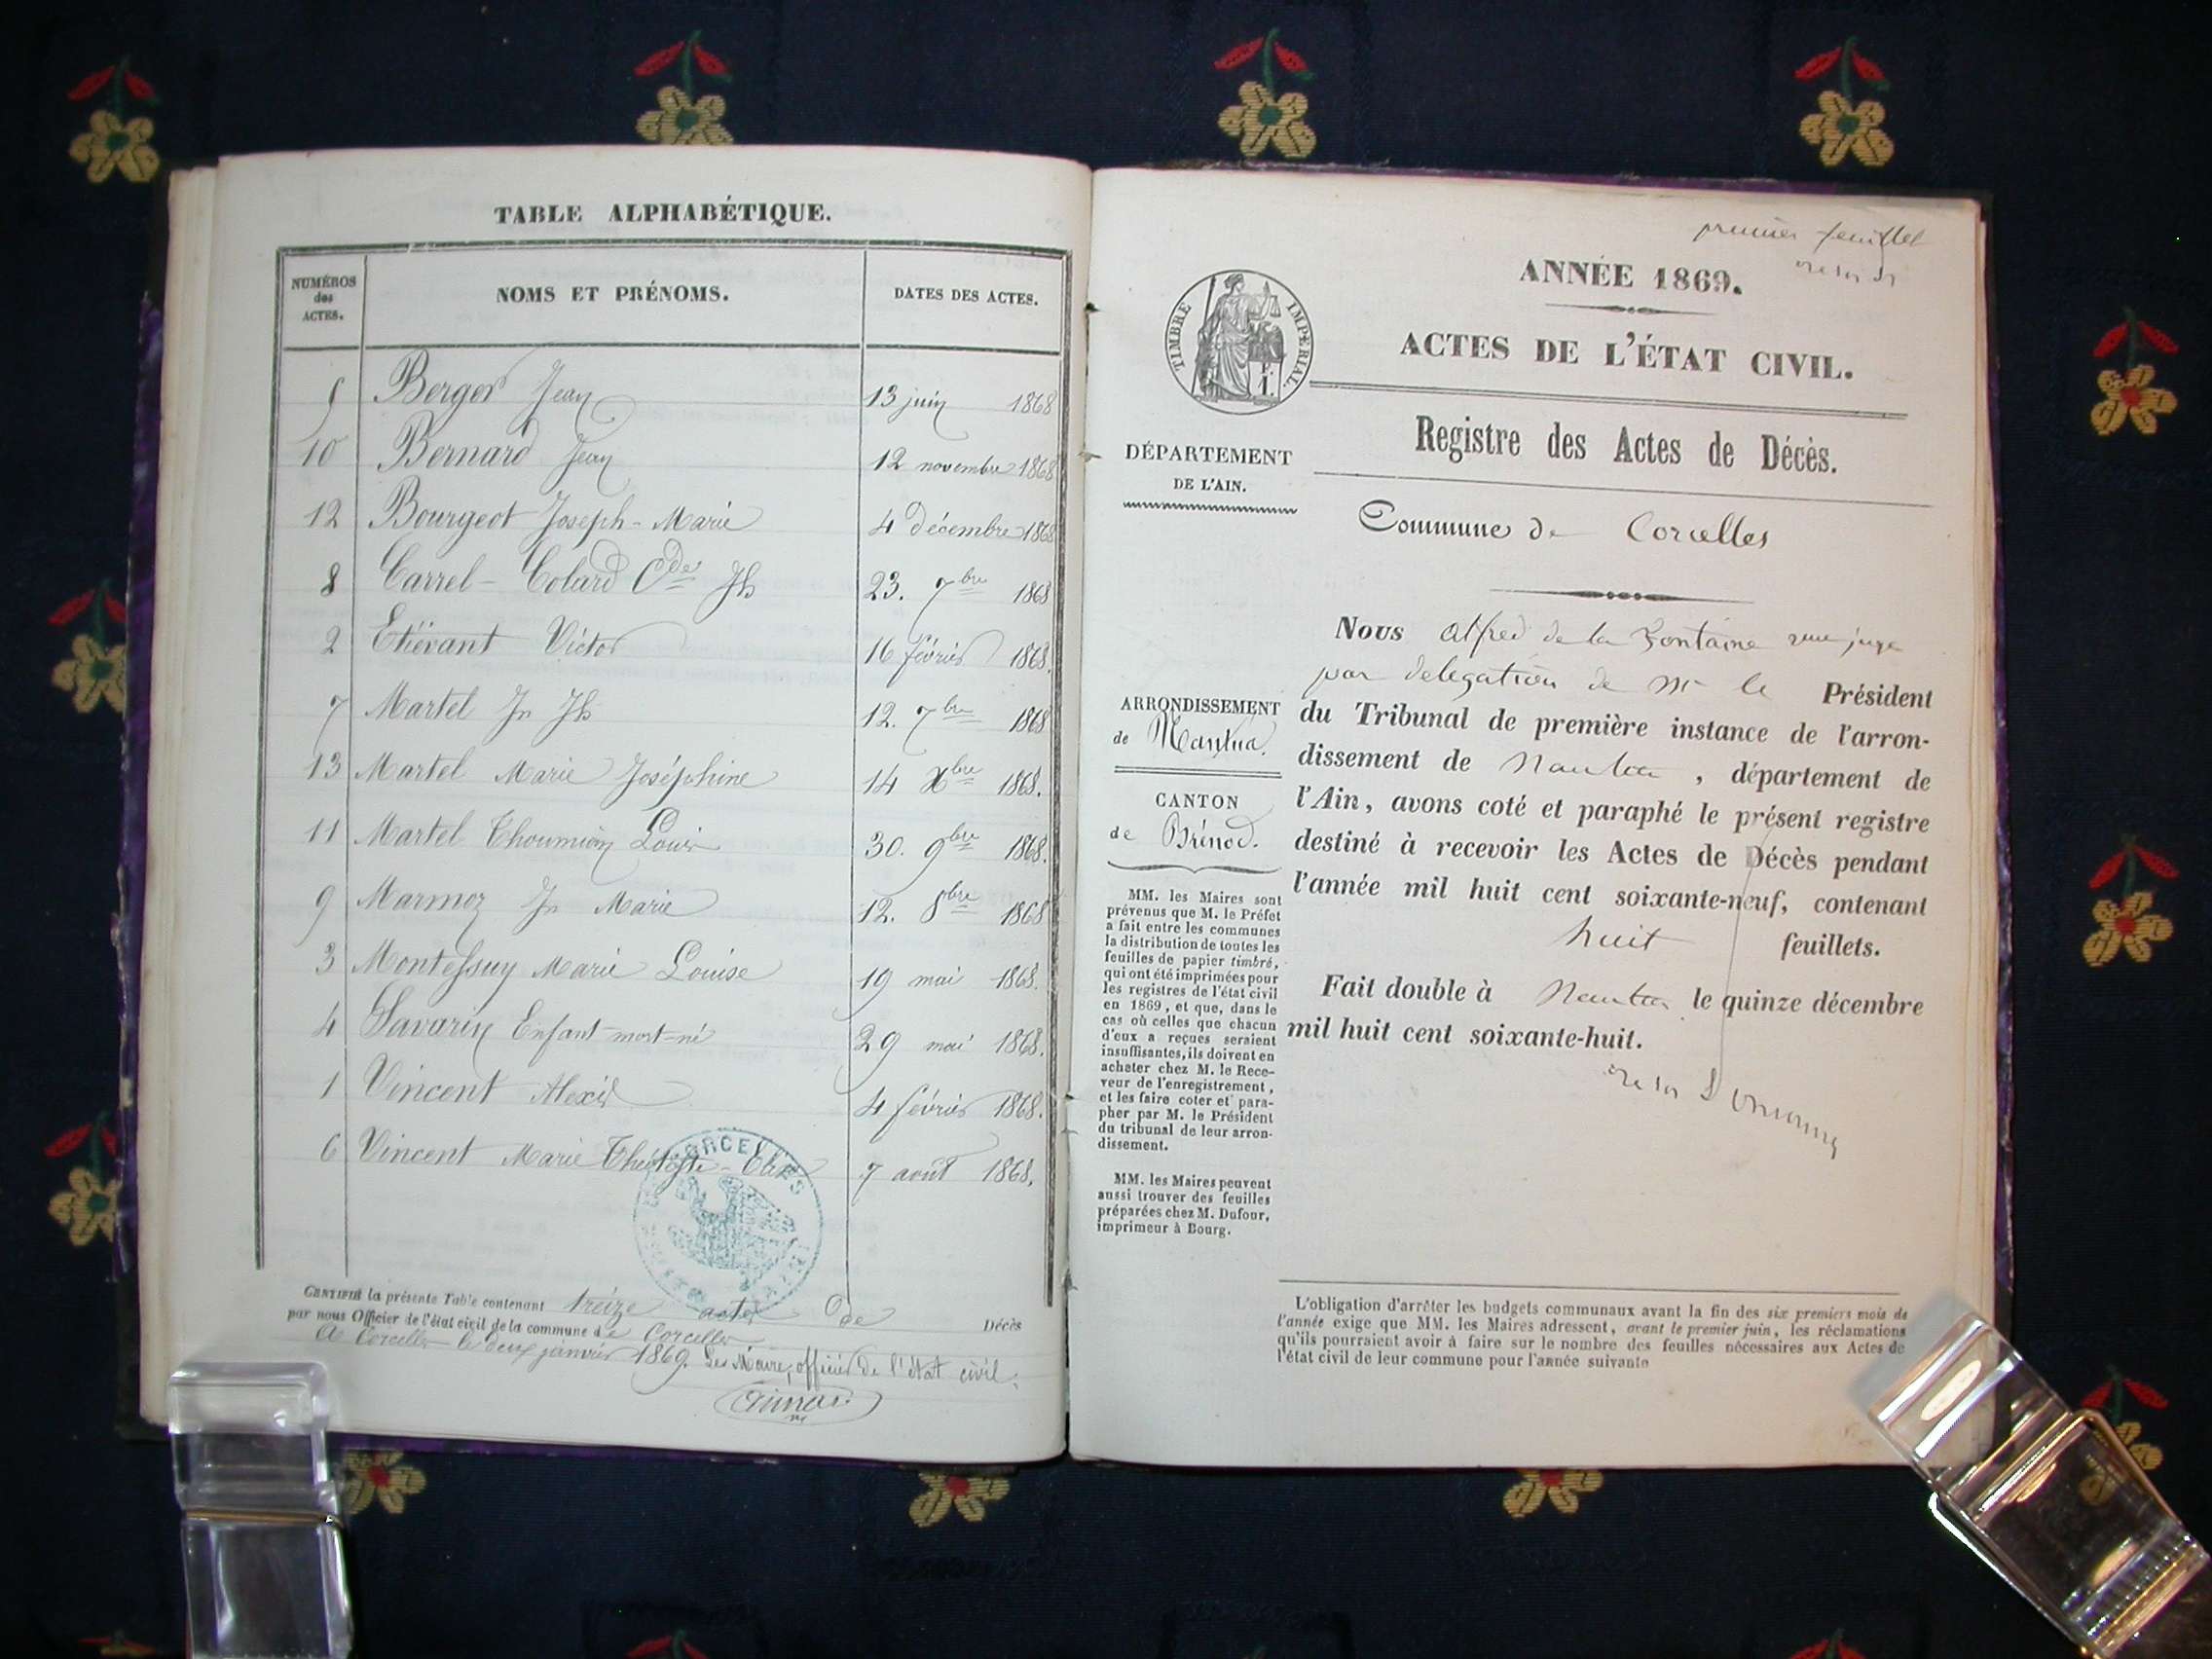 TABLE ALPHABÉTIQUE.
NUMÉROS des ACTES.
NOMS ET PRÉNOMS.
DATES DES ACTES.
5 Berger Jean 13 juin 1868
10 Bernard Jean 12 novembre 1868
12 Bourgeot Joseph-Marie 4 décembre 1868
8 Carrel-Colard Cde Jh 23. 7bre 1868
2 Etiévant Victor 16 février 1868.
7 Martel Jn Jh 12. 7bre 1868
13 Martel Marie Joséphine 14 Xbre 1868.
11 Martel Thoumion Louis 30. 9bre 1868.
9 Marmoz Jn Marie 12. 8bre 1868
3 Montessuy Marie Louise 19 mai 1868.
4 Savarin Enfant mort-né 29 mai 1868.
1 Vincent Alexis 4 février 1868.
6 Vincent Marie 7 août 1868.
CORCELLES
CERTIFIÉ la présente Table contenant treize actes de Décès
par nous Officier de l'état civil de la commune de Corcelles
A Corcelles le deux janvier 1869. Le Maire, officier de l'état civil.
premier feuillet
ANNÉE 1869.
TIMBRE IMPÉRIAL.
F. 1.
ACTES DE L'ÉTAT CIVIL.
Registre des Actes de Décès.
DÉPARTEMENT
DE L'AIN.
Commune de Corcelles
ARRONDISSEMENT
de Nantua.
CANTON
de Brénod.
MM. les Maires sont
prévenus que M. le Préfet
a fait entre les communes
la distribution de toutes les
feuilles de papier timbré,
qui ont été imprimées pour
les registres de l'état civil
en 1869, et que, dans le
cas où celles que chacun
d'eux a reçues seraient
insuffisantes, ils doivent en
acheter chez M. le Rece-
veur de l'enregistrement,
et les faire coter et para-
pher par M. le Président
du tribunal de leur arron-
dissement.
MM. les Maires peuvent
aussi trouver des feuilles
préparées chez M. Dufour,
imprimeur à Bourg.
Nous Alfred de la Fontaine juge
par delegation de Mr le Président
du Tribunal de première instance de l'arron-
dissement de Nantua, département de
l'Ain, avons coté et paraphé le présent registre
destiné à recevoir les Actes de Décès pendant
l'année mil huit cent soixante-neuf, contenant
huit feuillets.
Fait double à Nantua le quinze décembre
mil huit cent soixante-huit.
L'obligation d'arrêter les budgets communaux avant la fin des six premiers mois de
l'année exige que MM. les Maires adressent, avant le premier juin, les réclamations
qu'ils pourraient avoir à faire sur le nombre des feuilles nécessaires aux Actes de
l'état civil de leur commune pour l'année suivante